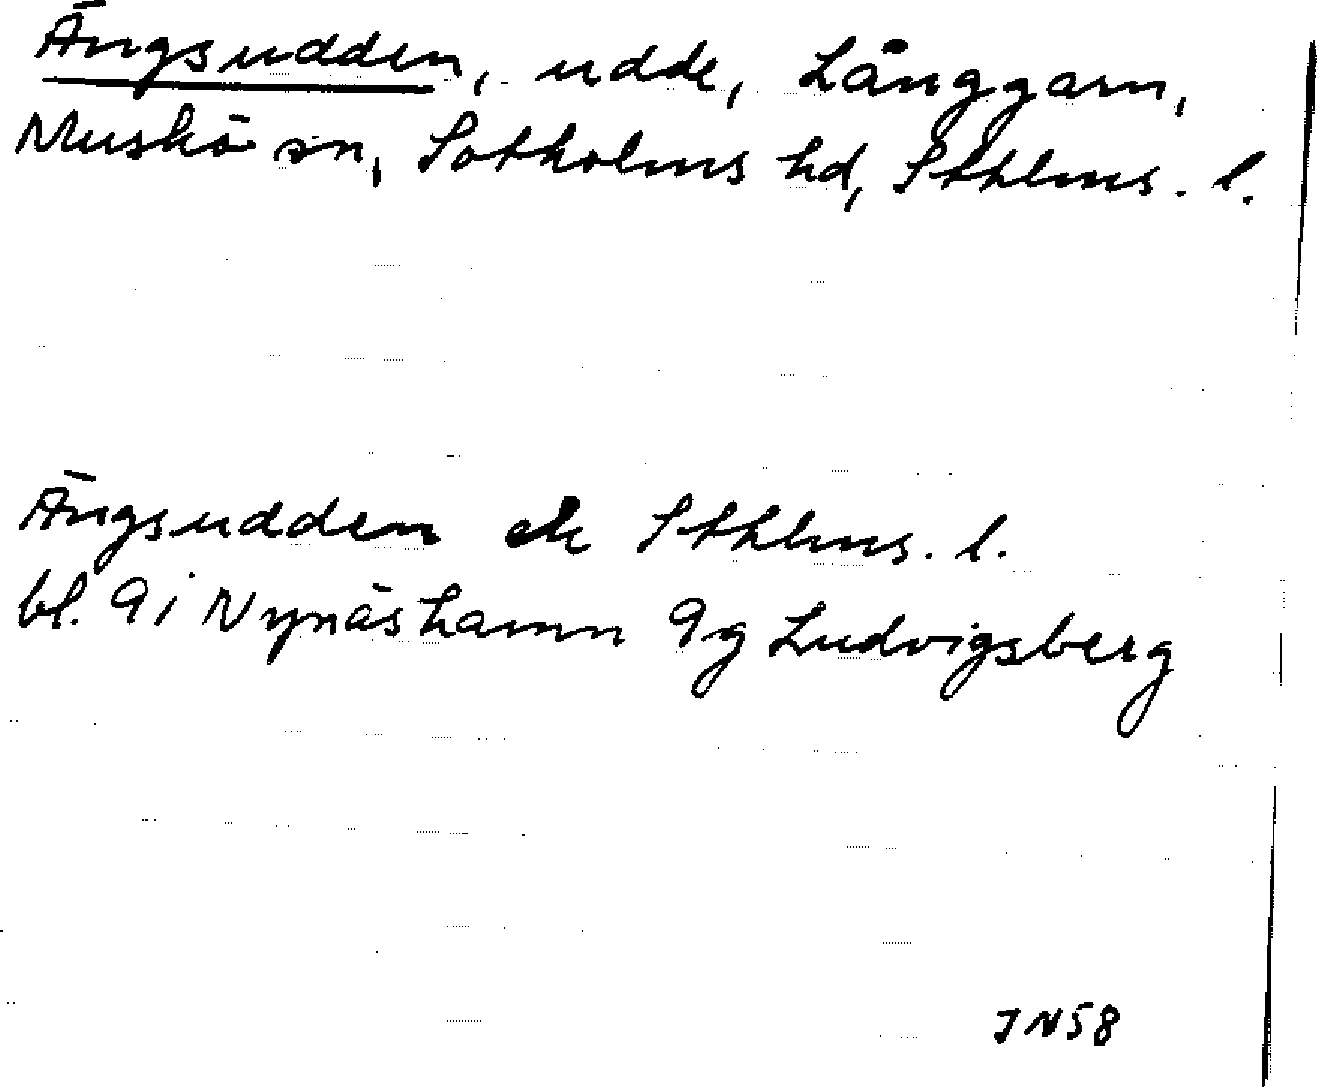 Ängsudden, udde, Långgarn,
Muskö sn, Sotholms hd, Sthlms. l.
Ängsudden ek Sthlms. l.
bl. 9i Nynäshamn 9g Ludvigsberg
JN58